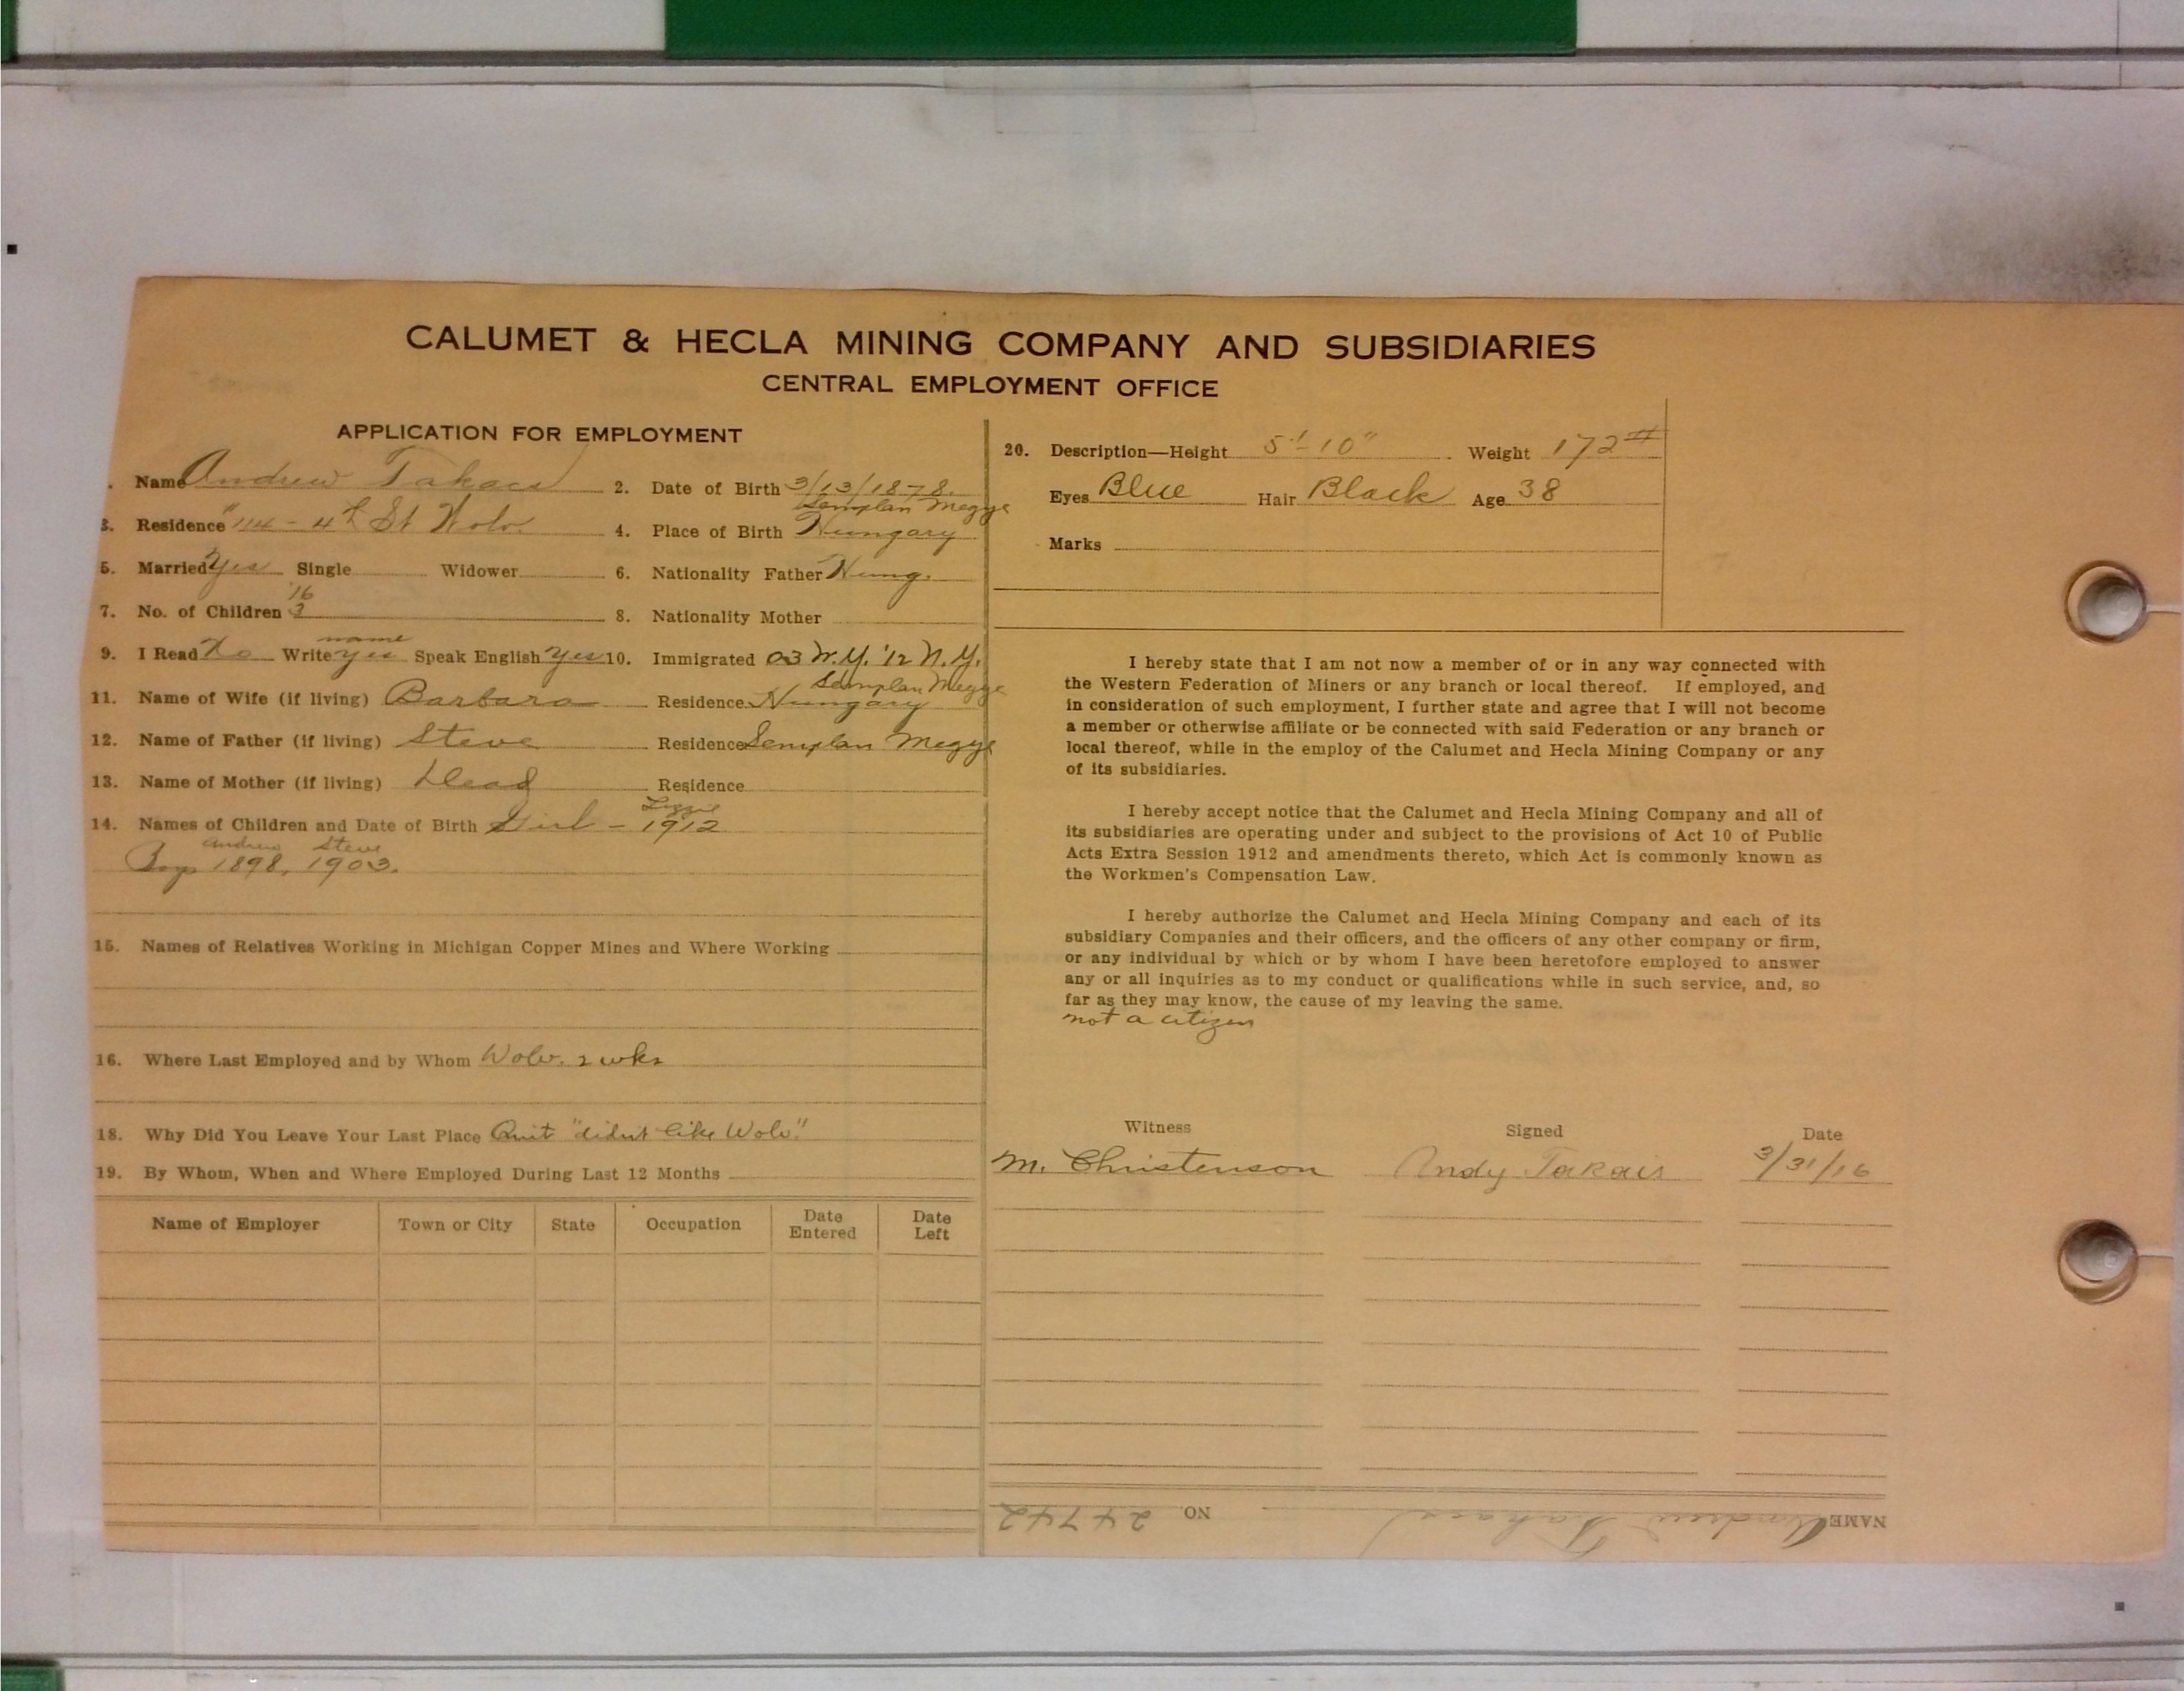 CALUMET & HECLA MINING COMPANY AND SUBSIDIARIES
CENTRAL EMPLOYMENT OFFICE
APPLICATION FOR EMPLOYMENT
. Name Andrew Takacs 2. Date of Birth 3/13/1878.
3. Residence 114 - 4th St Wolv. 4. Place of Birth Semplan Megye Hungary
5. Married Yes Single Widower 6. Nationality Father Hung.
7. No. of Children '16 3 8. Nationality Mother
9. I Read No Write name yes Speak English Yes 10. Immigrated 03 N.Y. '12 N.Y.
11. Name of Wife (if living) Barbara Residence Semplan Megye Hungary
12. Name of Father (if living) Steve Residence Semplan Megye
13. Name of Mother (if living) Dead Residence
14. Names of Children and Date of Birth Girl - Lizzie 1912
Andrew Steve
Boys 1898, 1903.
15. Names of Relatives Working in Michigan Copper Mines and Where Working
16. Where Last Employed and by Whom Wolv. 2 wks
18. Why Did You Leave Your Last Place Quit "didnt like Wolv."
19. By Whom, When and Where Employed During Last 12 Months
Name of Employer Town or City State Occupation Date Entered Date Left
20. Description—Height 5'-10" Weight 172#
Eyes Blue Hair Black Age 38
Marks
I hereby state that I am not now a member of or in any way connected with
the Western Federation of Miners or any branch or local thereof. If employed, and
in consideration of such employment, I further state and agree that I will not become
a member or otherwise affiliate or be connected with said Federation or any branch or
local thereof, while in the employ of the Calumet and Hecla Mining Company or any
of its subsidiaries.
I hereby accept notice that the Calumet and Hecla Mining Company and all of
its subsidiaries are operating under and subject to the provisions of Act 10 of Public
Acts Extra Session 1912 and amendments thereto, which Act is commonly known as
the Workmen's Compensation Law.
I hereby authorize the Calumet and Hecla Mining Company and each of its
subsidiary Companies and their officers, and the officers of any other company or firm,
or any individual by which or by whom I have been heretofore employed to answer
any or all inquiries as to my conduct or qualifications while in such service, and, so
far as they may know, the cause of my leaving the same.
not a citizen
Witness Signed Date
M. Christenson Andy Takais 3/31/16
NAME Andrew Takacs NO 24742